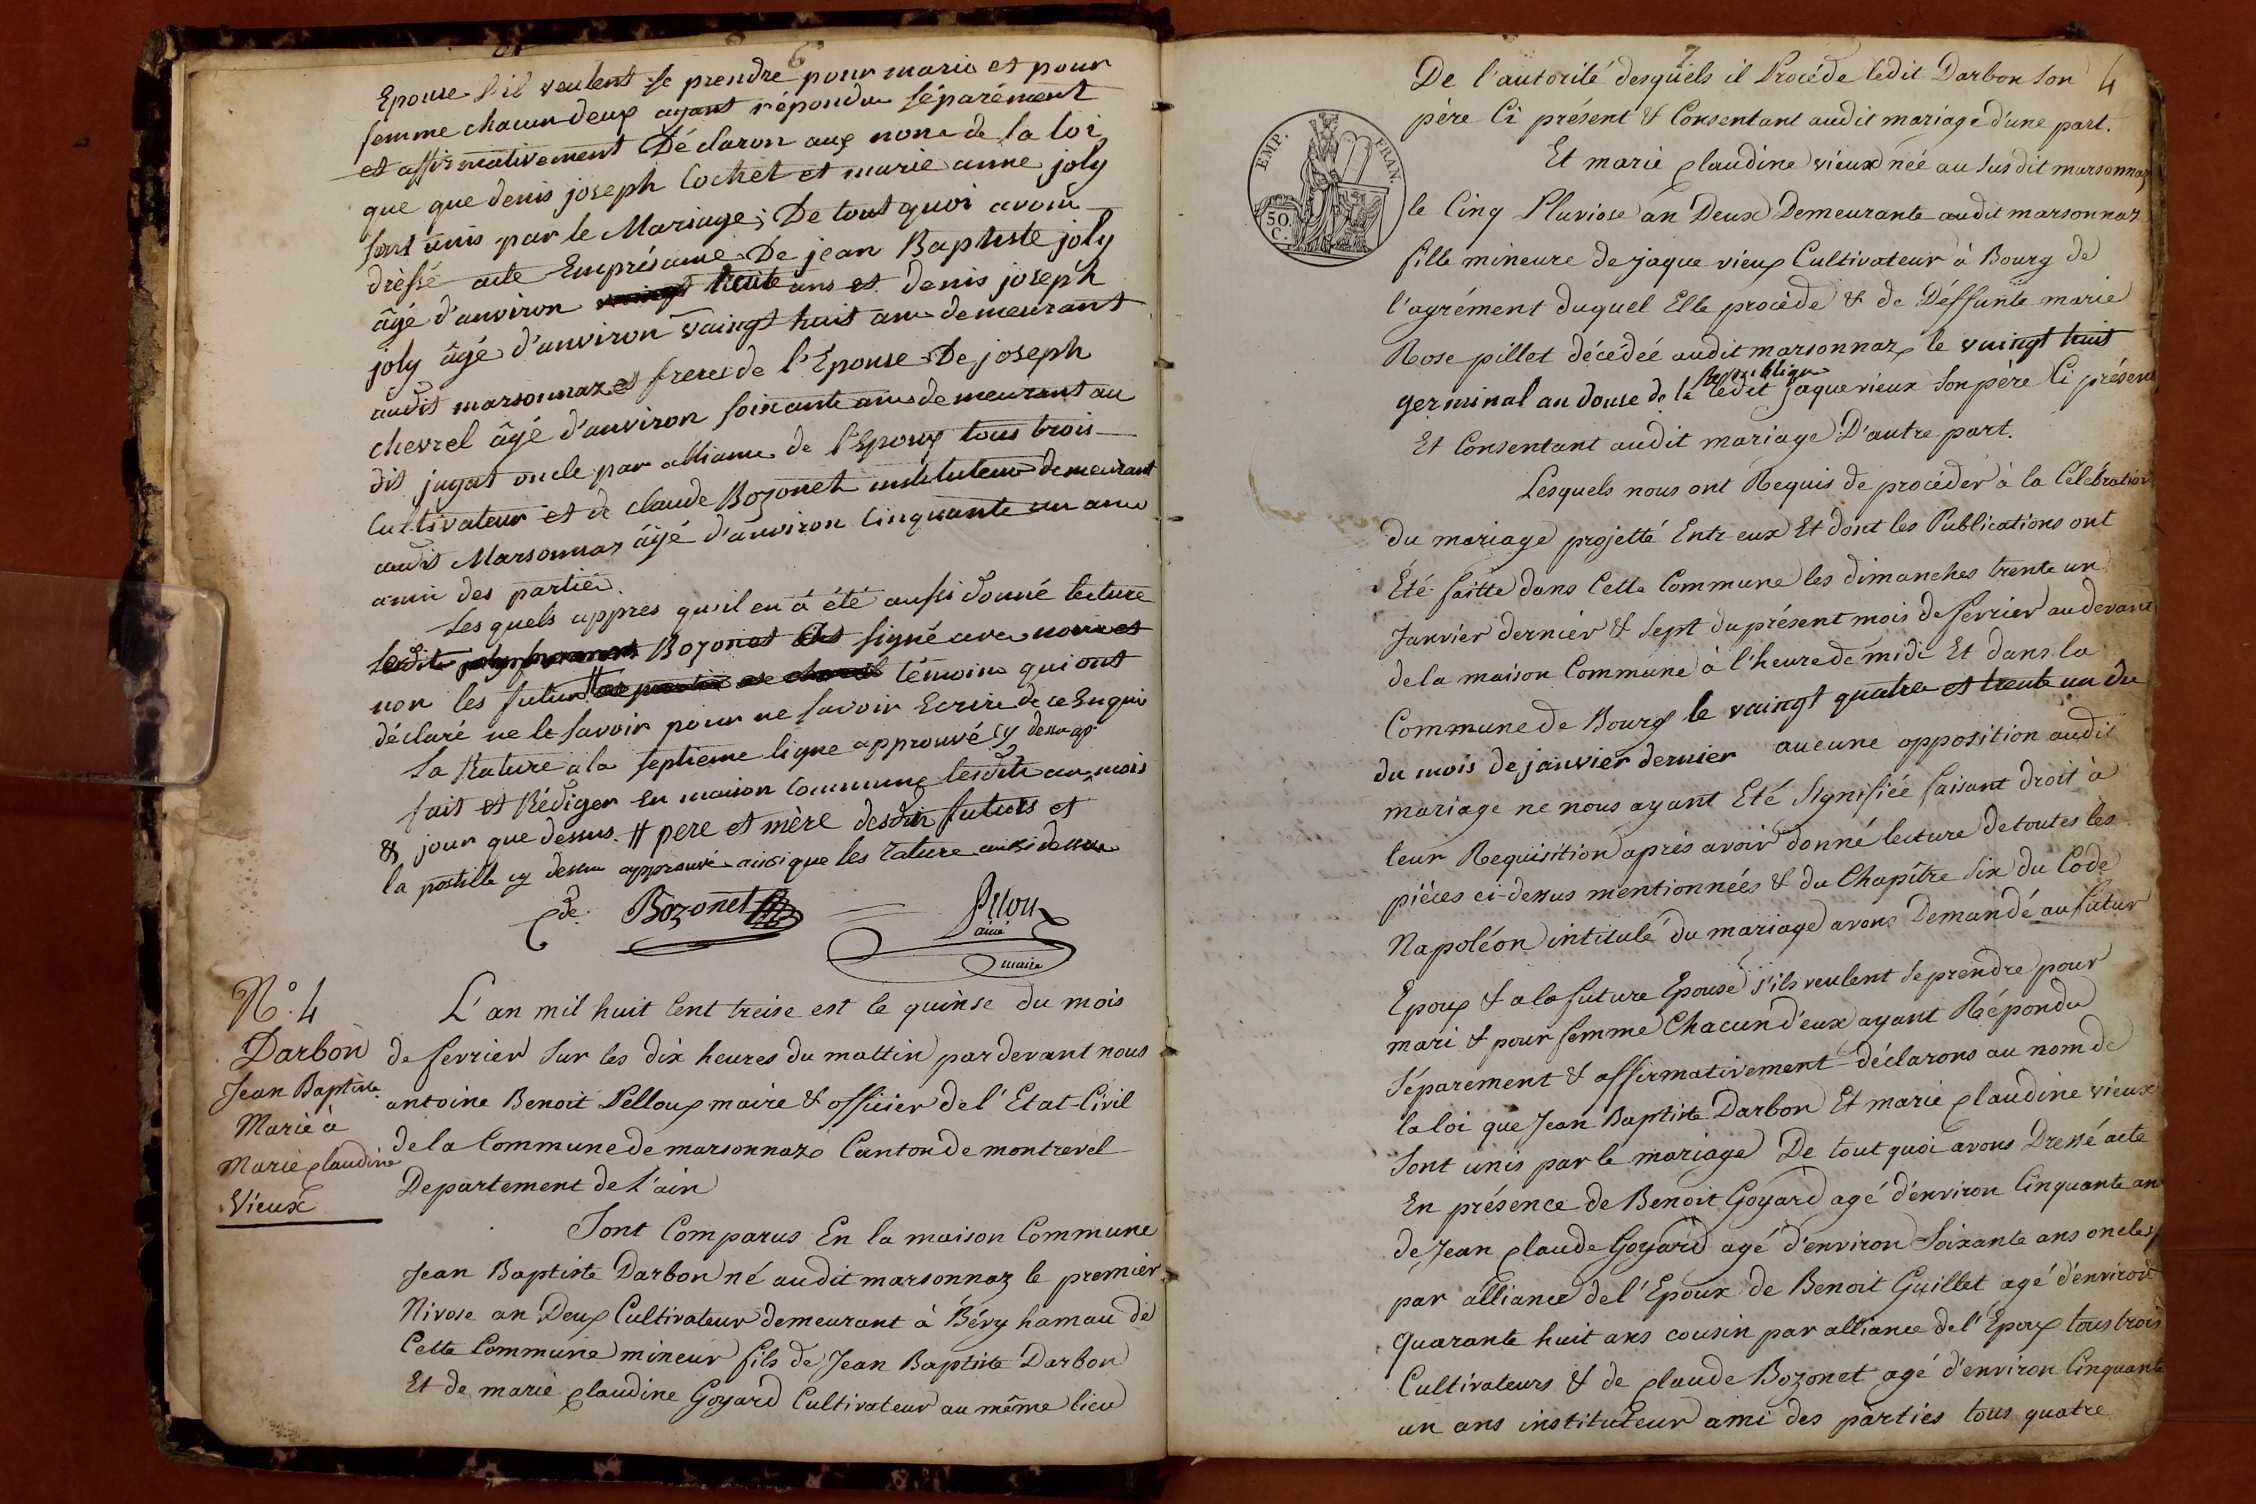 6
Epouse s'il veulent se prendre pour marie et pour
femme chacun deux ayant répondu séparément
et affirmativement Déclaron aux nom de la loi
que que denis joseph Cochet et marie anne joly
sont unis par le Mariage; De tout quoi avons
dréssé acte Enprésance De jean Baptiste joly
âgé d'anviron trente ans et denis joseph
joly âgé d'anviron vaingt huit ans demeurant
audit marsonnaz et freres de l'Epouse De joseph
chevrel âgé d'anviron soixante ans demeurant au
dit jayat oncle par alliance de l'Epoux tous trois
Cultivateur et de claude Bozonet instituteur demeurant
audit Marsonnaz âgé d'anviron Cinquante un ans
ami des parties.
Les quels appres qu'il en à été aussi donné lecture
Bozonet signé avec nous et
non les futur # témoins qui ont
déclaré ne le savoir pour ne savoir Ecrire de ce Enquis
la Rature a la septieme ligne approuvé cy dessus
fait et Rédiger En maison Commune lesdits an, mois
& jour que dessus # pere et mère desdits futurs et
la postille cy dessus approuvé ainsi que les rature aussi dessus
Cde. Bozonet
Pellou
ainé
maire
N°. 4
Darbon
Jean Baptiste
Marié à
Marie Claudine
Vieux
L'an mil huit Cent treise est le quinse du mois
de fevrier Sur les dix heures du mattin par devant nous
antoine Benoit Pelloux maire & officier de l'Etat-Civil
de la Commune de marsonnaz Canton de montrevel
Departement de L'ain
Sont Comparus En la maison Commune
Jean Baptiste Darbon né audit marsonnaz le premier
Nivose an Deux Cultivateur demeurant à Bévy hamau de
Cette Commune mineur fils de Jean Baptiste Darbon
Et de marie Claudine Goyard Cultivateur au même lieu
7
4
EMP. FRAN.
50 C.
De l'autorité desquels il Procéde ledit Darbon Son
père Ci présent & Consentant audit mariage d'une part.
Et marie Claudine vieux née au Susdit marsonnaz
le Cinq Pluviose an Deux Demeurante audit marsonnaz
fille mineure de jaque vieux Cultivateur à Bourg de
l'agrément duquel Elle procède & de Déffunte marie
Rose pillet décédeé audit marsonnaz le vaingt huit
germinal an douse de la Republique ledit jaque vieux Son père Ci présent
Et Consentant audit mariage D'autre part.
Lesquels nous ont Requis de procéder à la Célébration
du mariage projetté Entr-eux Et dont les Publications ont
Été faitte dans Cette Commune les dimanches trente un
Janvier dernier & Sept du présent mois de fevrier au devant
de la maison Commune à l'heure de midi Et dans la
Commune de Bourg le vaingt quatre et trente un du
du mois de janvier dernier aucune opposition audit
mariage ne nous ayant Eté Signifiée faisant droit à
leur Requisition après avoir donné lecture de toutes les
pièces ci-dessus mentionnées & du Chapitre Six du Code
Napoléon intitulé du mariage avons Demandé au futur
Epoux & a la future Epouse s'ils veulent se prendre pour
mari & pour femme Chacun d'eux ayant Répondu
Séparement & affirmativement déclarons au nom de
la loi que Jean Baptiste Darbon Et marie Claudine vieux
Sont unis par le mariage De tout quoi avons Dressé acte
En présence de Benoit Goyard agé d'environ Cinquante an
de Jean Claude Goyard agé d'environ Soixante ans oncles
par alliance de l'Epoux de Benoit Guillet agé d'environ
Quarante huit ans cousin par alliance de l'Epoux tous trois
Cultivateurs & de Claude Bozonet agé d'environ Cinquante
un ans instituteur ami des parties tous quatre